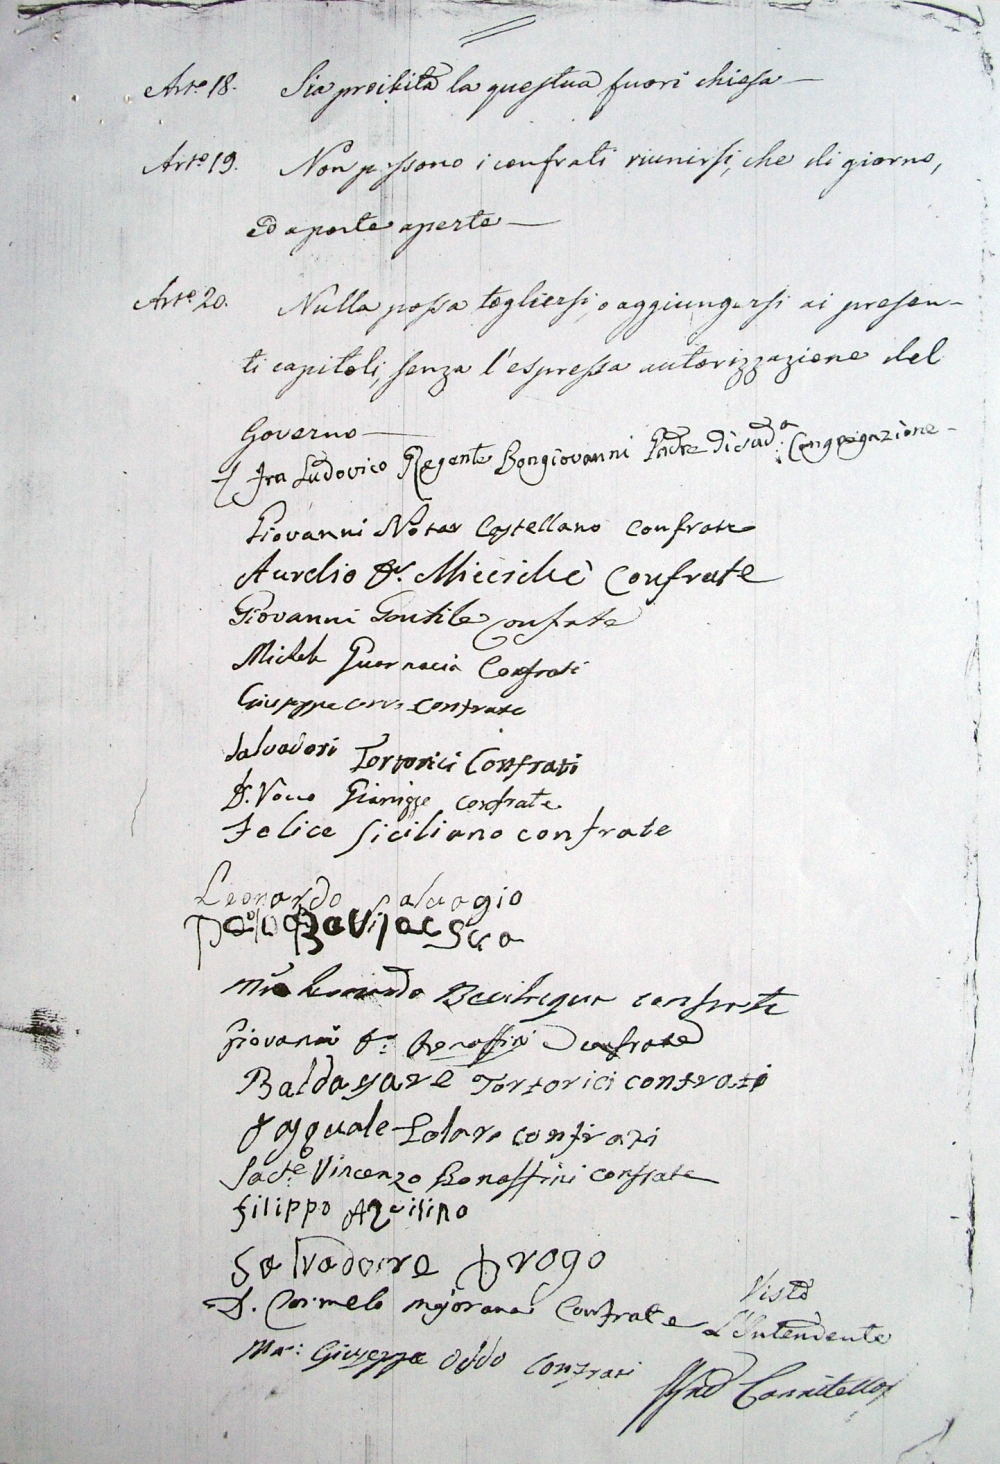 Art.o 18. Sia proibita la questua fuori chiesa
Art.o 19. Non possono i confrati riunirsi, che di giorno,
ed a porte aperte
Art.o 20. Nulla possa togliersi, o aggiungersi ai presen-
ti capitoli, senza l'espressa autorizzazione del
Governo
Fra Ludovico Regente Bongiovanni Padre di sud.a Congregazione
Giovanni Notar Castellano confrate
Aurelio Dr. Miccichè Confrate
Giovanni Gentile Confrate
Michele Guarnacia Confrati
Giuseppe confrate
Salvadori Tortorici Confrati
D. confrate
Felice Siciliano confrate
Leonardo Salvagio
Paolo Bevilacqua
Leonardo Bevilaqua confrate
Giovanni Bonaffini Confrate
Baldasare Tortorici confrati
Pasquale Lolaro confrati
Sacte. Vincenzo Bonaffini confrate
Filippo Aquilino
Salvadore Drogo
D. Carmelo Majorana Confrate
Ma: Giuseppe Oddo Confrati
Visto
L'Intendente